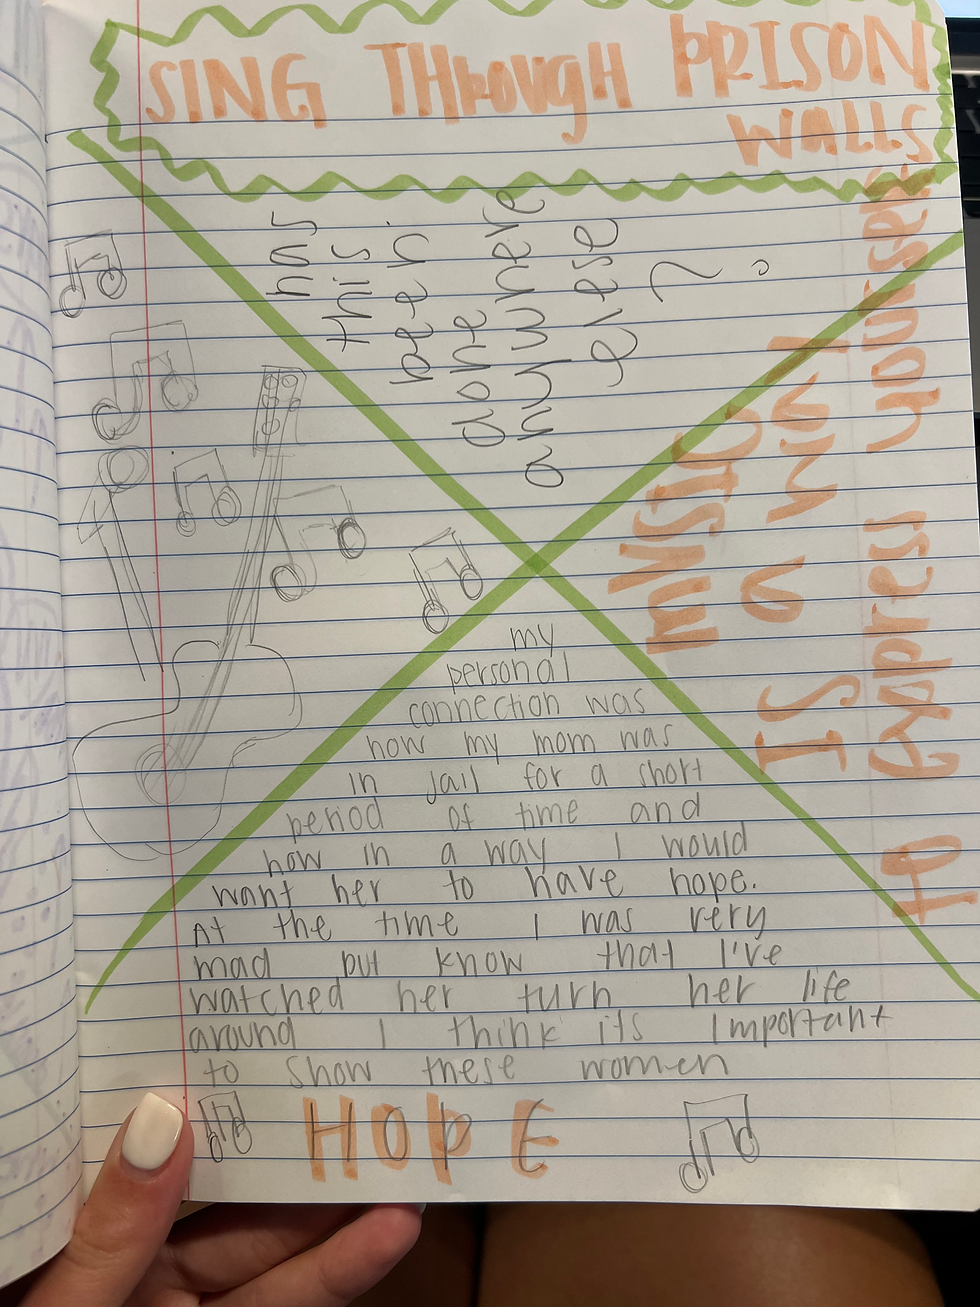 SING THROUGH PRISON
WALLS
has
this
been
done
anywhere
else
?
MUSIC
IS a way
to express yourself
my
personal
connection was
how my mom was
in jail for a short
period of time and
how in a way I would
want her to have hope.
At the time I was very
mad but know that I've
watched her turn her life
around I think its important
to show these women
HOPE